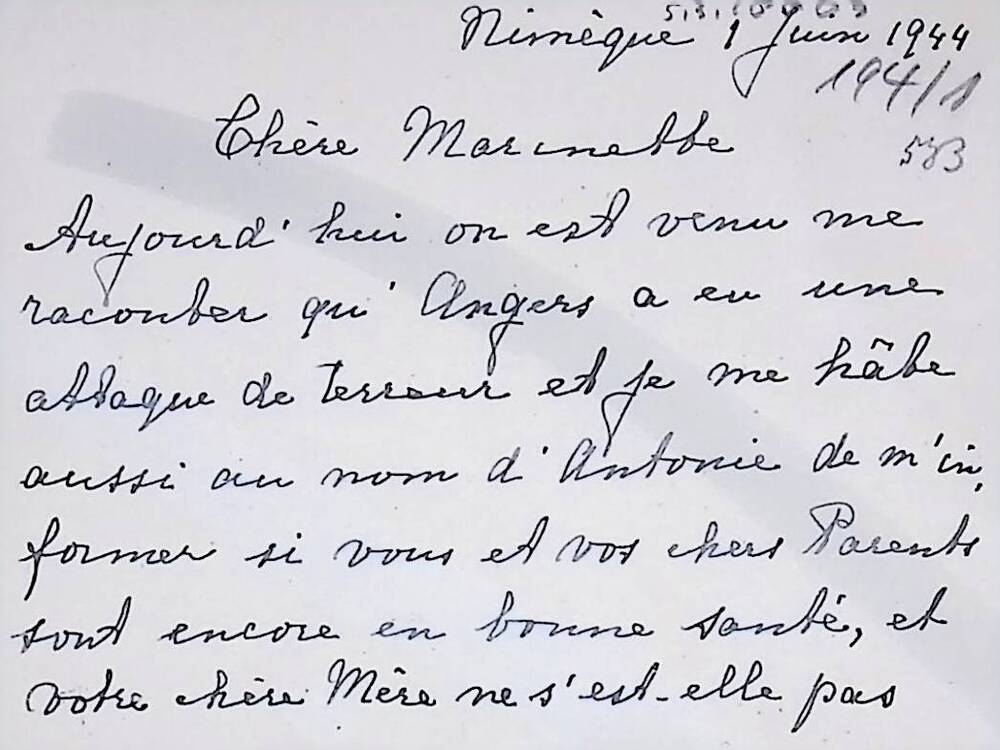 Nimègue 1 Juin 1944
194/1
Chère Marinette
583
Aujourd'hui on est venu me
raconter qu'Angers a eu une
attaque de terreur et je me hâte
aussi au nom d'Antonie de m'in,
former si vous et vos chers Parents
sont encore en bonne santé, et
votre chère Mère ne s'est-elle pas